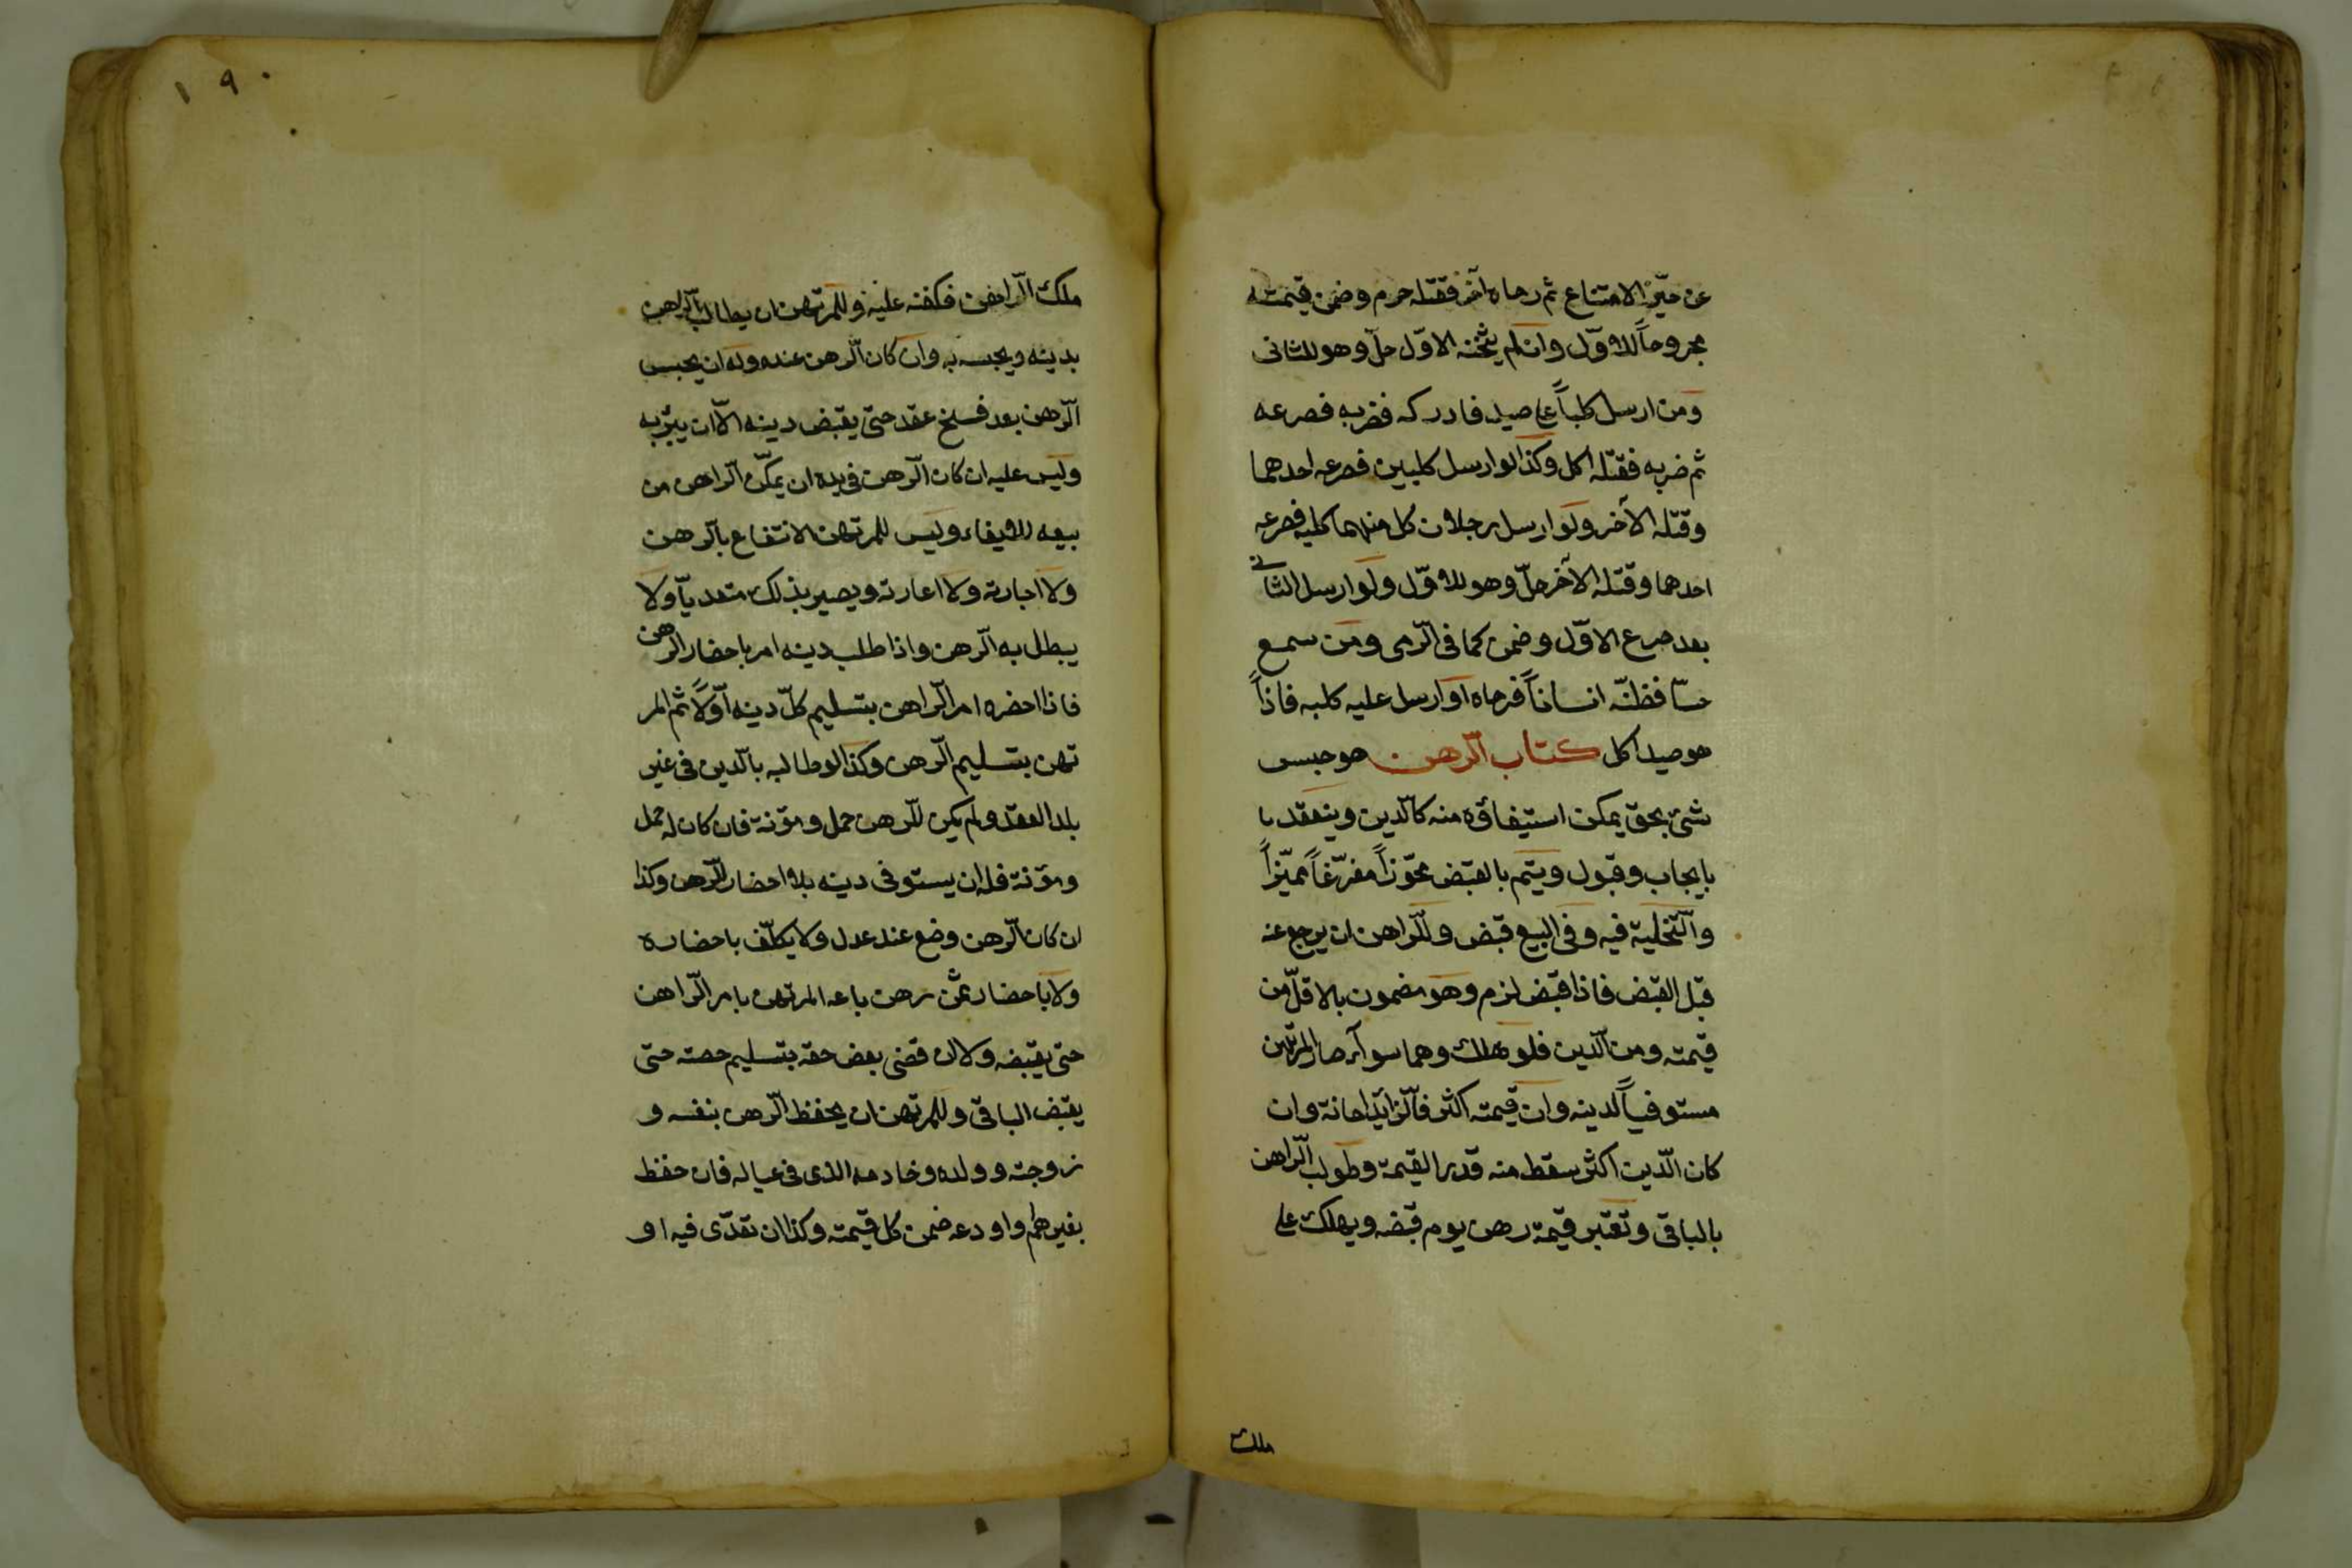 عن حيّز الامتناع ثم رماه آخر فقتله حرم وضمن قيمته
مجروحاً للاوّل وان لم يثخنه الاوّل حلّ وهو للثانى
ومن ارسل كلباً على صيد فادركه فضربه فصرعه
ثم ضربه فقتله اكل وكذا لو ارسل كلبين فصرعه احدهما
وقتله الآخر ولو ارسل رجلان كل منهما كلبه فصرعه
احدهما وقتله الآخر حلّ وهو للاوّل ولو ارسل الثانى
بعد صرع الاوّل وضمن كما فى الرّمى ومن سمع
حسّا فظنّه انساناً فرماه او ارسل عليه كلبه فاذاً
هو صيد اكل كتاب الرّهن هو حبس
شئ بحق يمكن استيفاؤه منه كالدين وينعقد با
بايجاب وقبول ويتم بالقبض محوّزاً مفرّغاً مميّزاً
والتّخلية فيه وفى البيع قبض وللرّاهن ان يرجع عنه
قبل القبض فاذا قبض لزم وهو مضمون بالاقلّ من
قيمته ومن الدّين فلو هلك وهما سواء صار المرتهن
مستوفياً لدينه وان قيمته اكثر فالزّايد امانة وان
كان الدّين اكثر سقط منه قدر القيمة وطولب الرّاهن
بالباقى وتعتبر قيمة رهن يوم قبضه ويهلك على
ملك
١٩٠
ملك الرّاهن فكفنه عليه وللمرتهن ان يطالب الرّاهن
بدينه ويحبسه به وان كان الرّهن عنده وله ان يحبس
الرّهن بعد فسخ عقد حتى يقبض دينه الّا ان يبرّئه
وليس عليه ان كان الرّهن فى يده ان يمكّن الرّاهن من
بيعه للايفاء وليس للمرتهن الانتفاع بالرّهن
ولا اجارته ولا اعارته ويصير بذلك متعدّياً ولا
يبطل به الرّهن واذا طلب دينه امر باحضار الرّهن
فاذا احضره امر الرّاهن بتسليم كلّ دينه اوّلاً ثم المر
تهن بتسليم الرّهن وكذا لو طالبه بالدّين فى غير
بلد العقد ولم يكن للرّهن حمل ومؤنة فان كان له حمل
ومؤنة فله ان يستوفى دينه بلا احضار الرّهن وكذا
ان كان الرّهن وضع عند عدل ولا يكلّف باحضاره
ولا باحضار ثمن رهن باعه المرتهن بامر الرّاهن
حتى يقبضه ولا ان قضى بعض حقه بتسليم حصته حتى
يقبض الباقى وللمرتهن ان يحفظ الرّهن بنفسه و
زوجته وولده وخادمه الذى فى عياله فان حفظ
بغيرهم او اودعه ضمن كل قيمته وكذا ان تعدّى فيه او